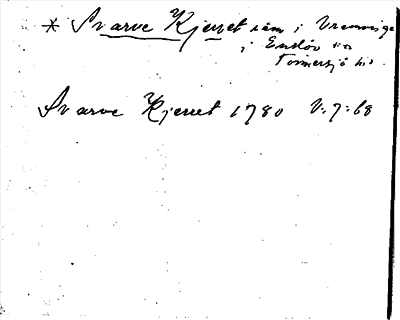 * Svarve Kjerret råm i Vrenninge
i Enslöv sn
Tönnersjö hd.
Svarve Kjerret 1780 V:7:68